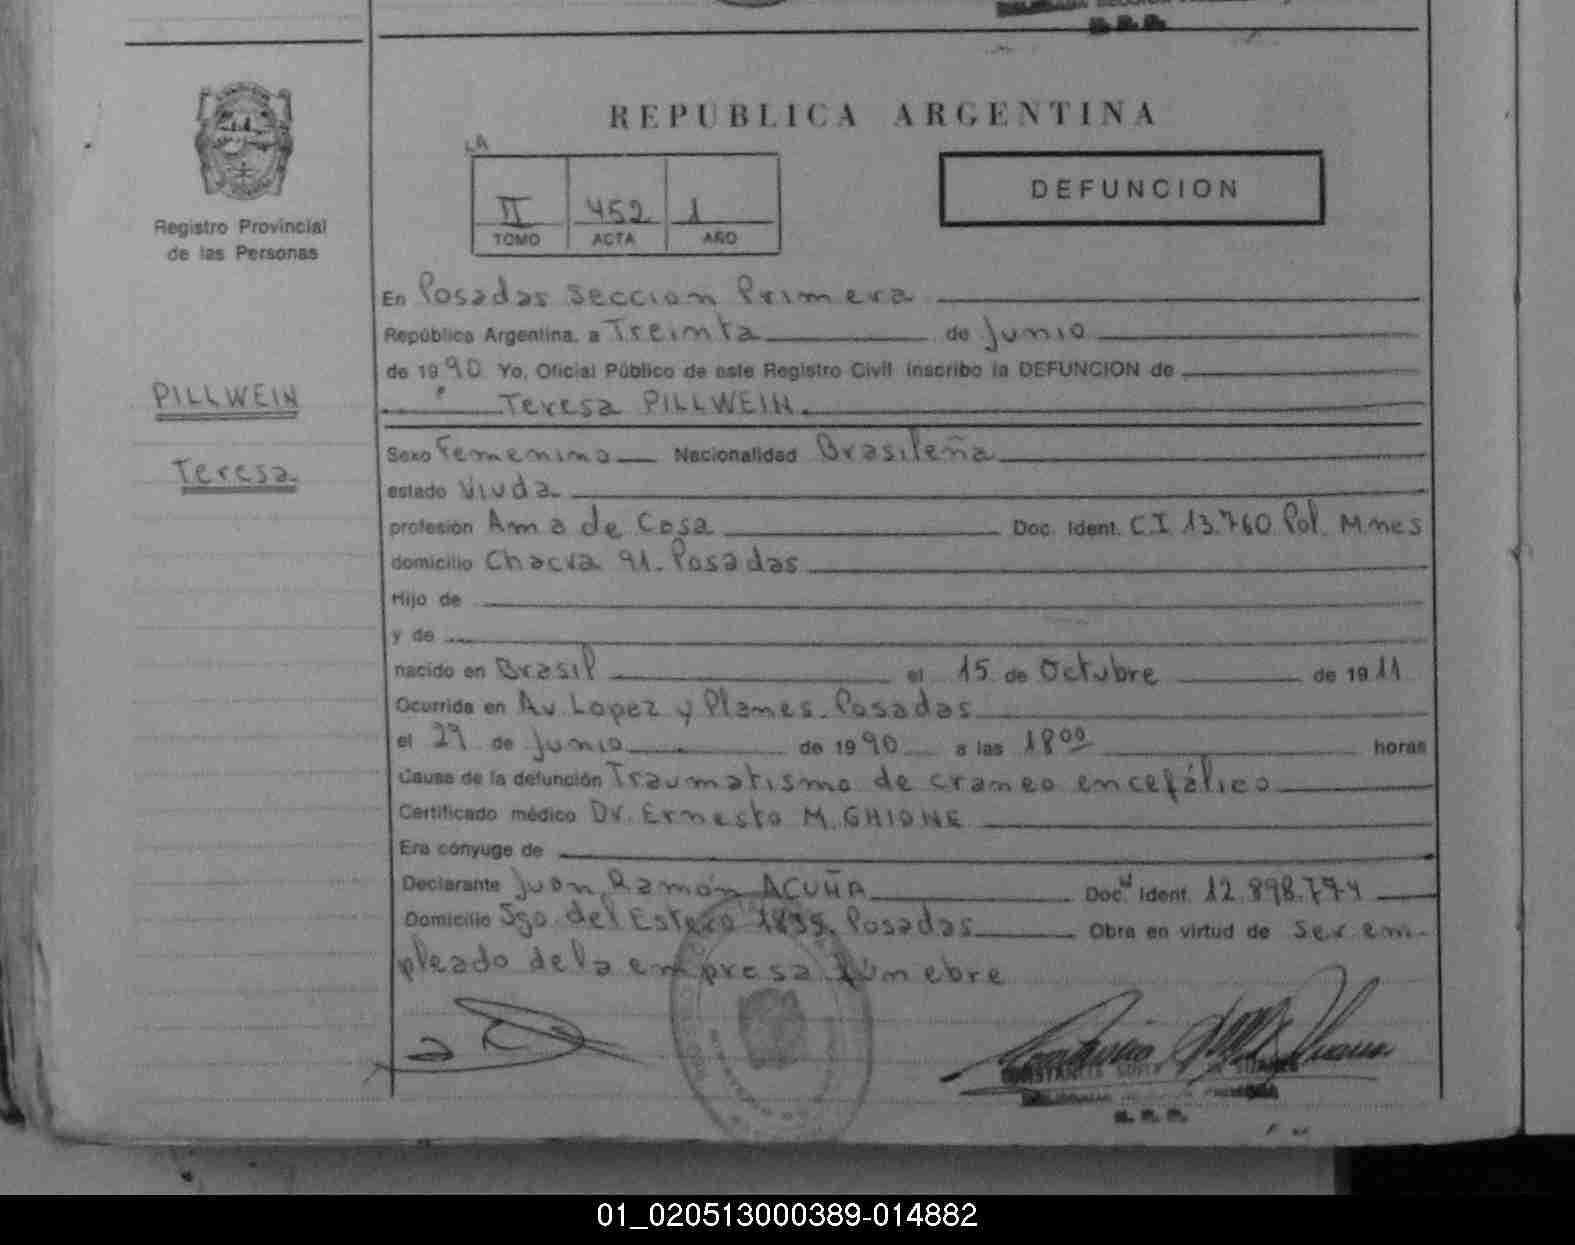 REPUBLICA ARGENTINA
LA
II 452 1
TOMO ACTA AÑO
DEFUNCION
Registro Provincial
de las Personas
PILLWEIN
Teresa
En Posadas Seccion Primera
República Argentina, a Treinta de Junio
de 1990 Yo, Oficial Público de este Registro Civil inscribo la DEFUNCION de
Teresa PILLWEIN.
Sexo Femenino Nacionalidad Brasileña
estado Viuda
profesión Ama de Casa Doc. Ident. C.I 13.760 Pol. Mnes
domicilio Chacra 91. Posadas
Hijo de
y de
nacido en Brasil el 15 de Octubre de 1911
Ocurrida en Av. Lopez y Planes. Posadas
el 29 de Junio de 1990 a las 18⁰⁰ horas
Causa de la defunción Traumatismo de craneo encefálico
Certificado médico Dr. Ernesto M. GHIONE
Era cónyuge de
Declarante Juan Ramón ACUÑA Doc. Ident. 12.898.774
Domicilio Sgo. del Estero Posadas Obra en virtud de ser em-
pleado de la empresa fúnebre
01_020513000389-014882